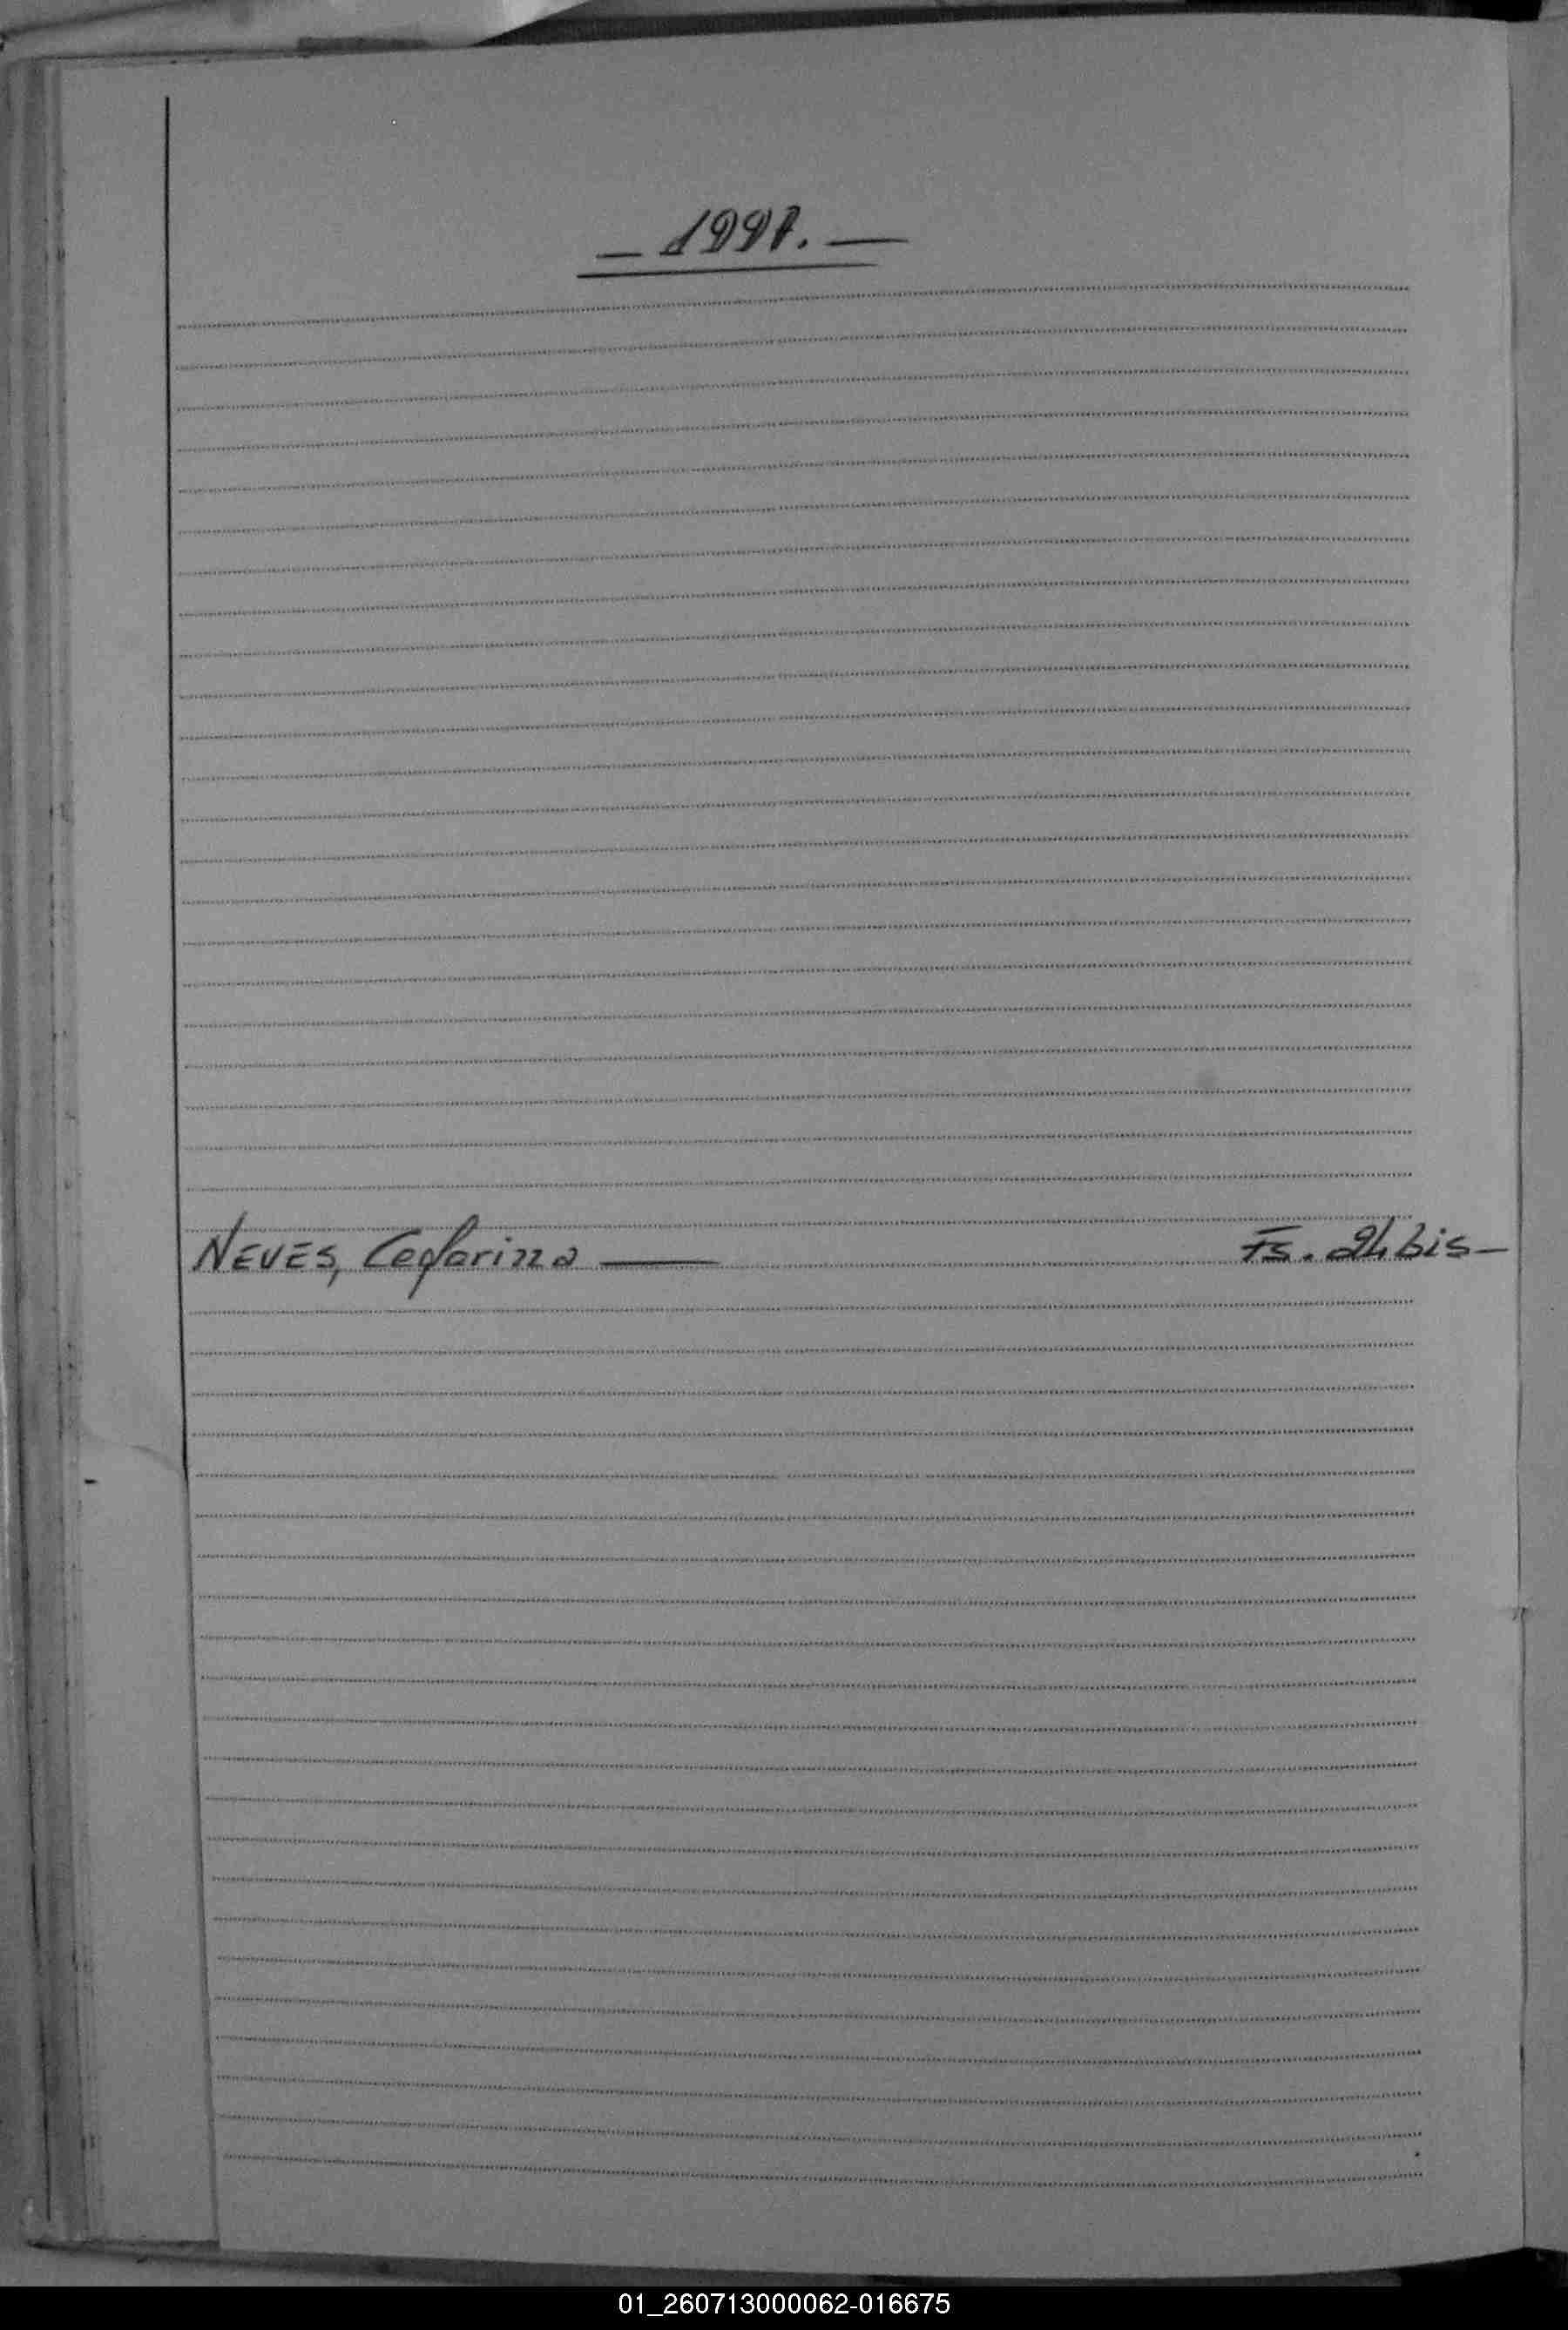 — 1991. —
NEVES, Ceferina — Fs. 24 bis —
01_260713000062-016675